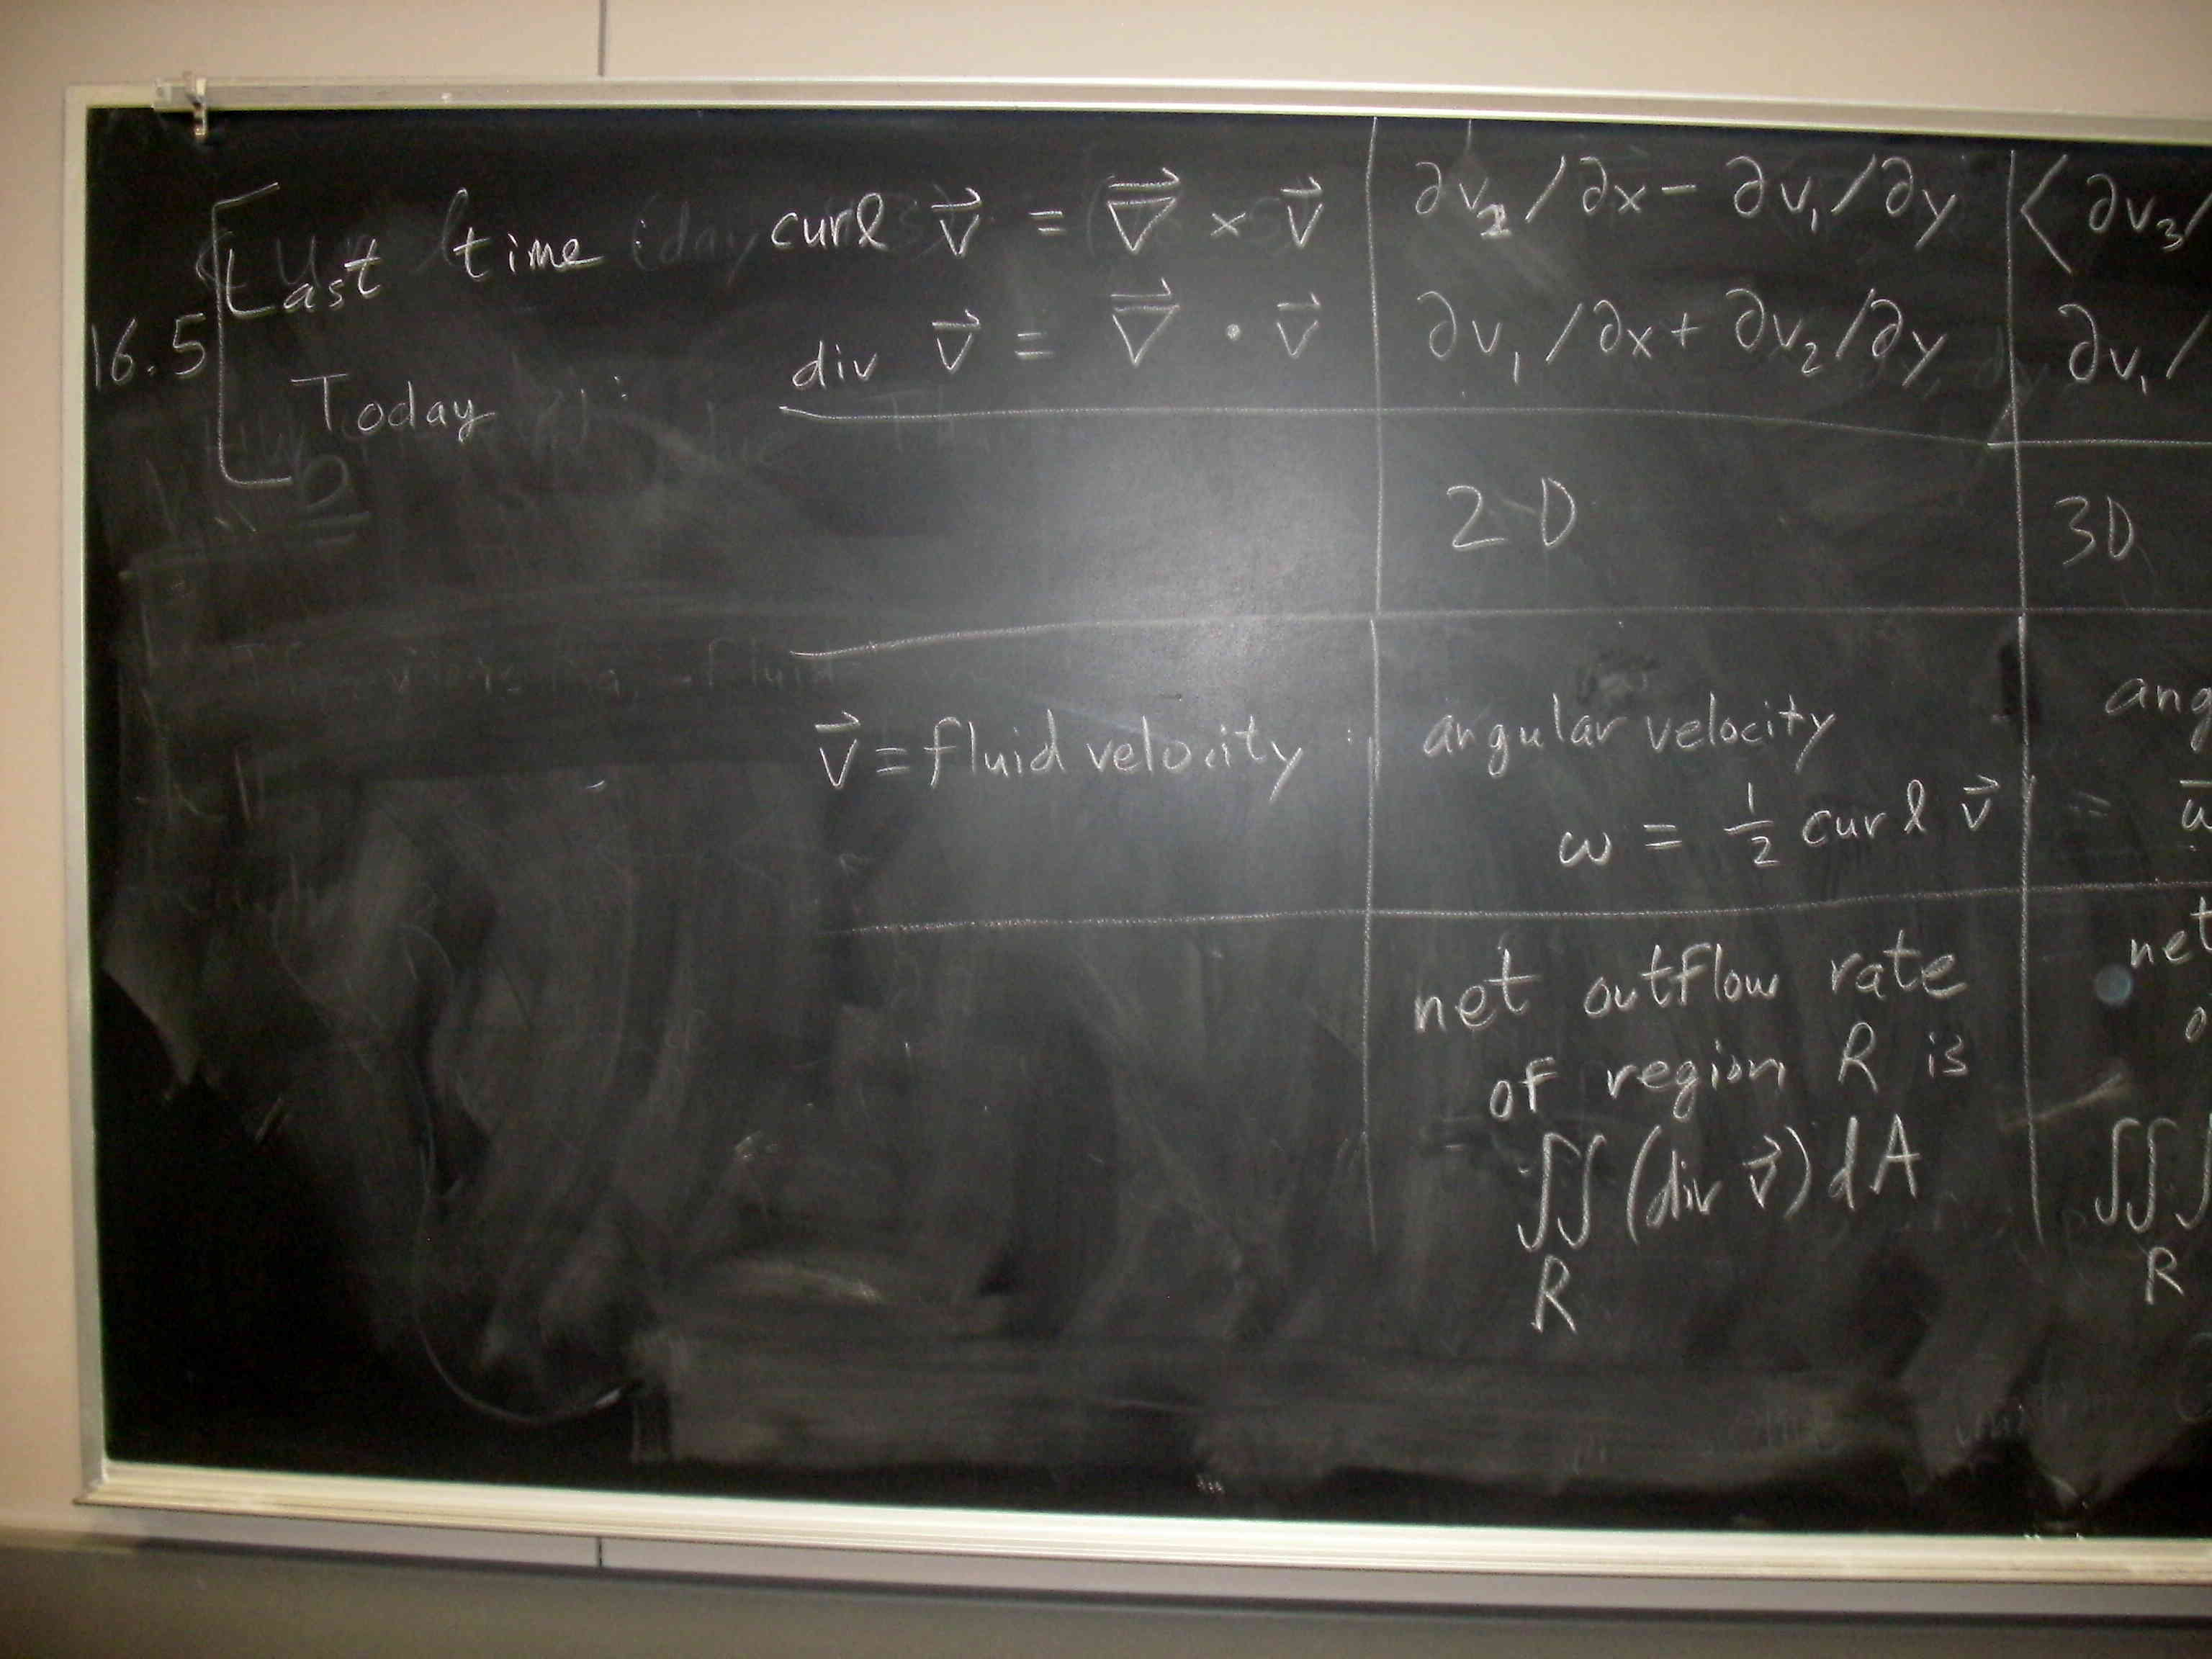 16.5
Last time : curl v⃗ = ∇⃗ × v⃗ | ∂v₂/∂x - ∂v₁/∂y | ⟨ ∂v₃/
Today : div v⃗ = ∇⃗ · v⃗ | ∂v₁/∂x + ∂v₂/∂y | ∂v₁/
2-D | 3D
v⃗ = fluid velocity : | angular velocity | ang
ω = ½ curl v⃗ | =
net outflow rate | net
of region R is | o
∬ (div v⃗) dA | ∭
R | R